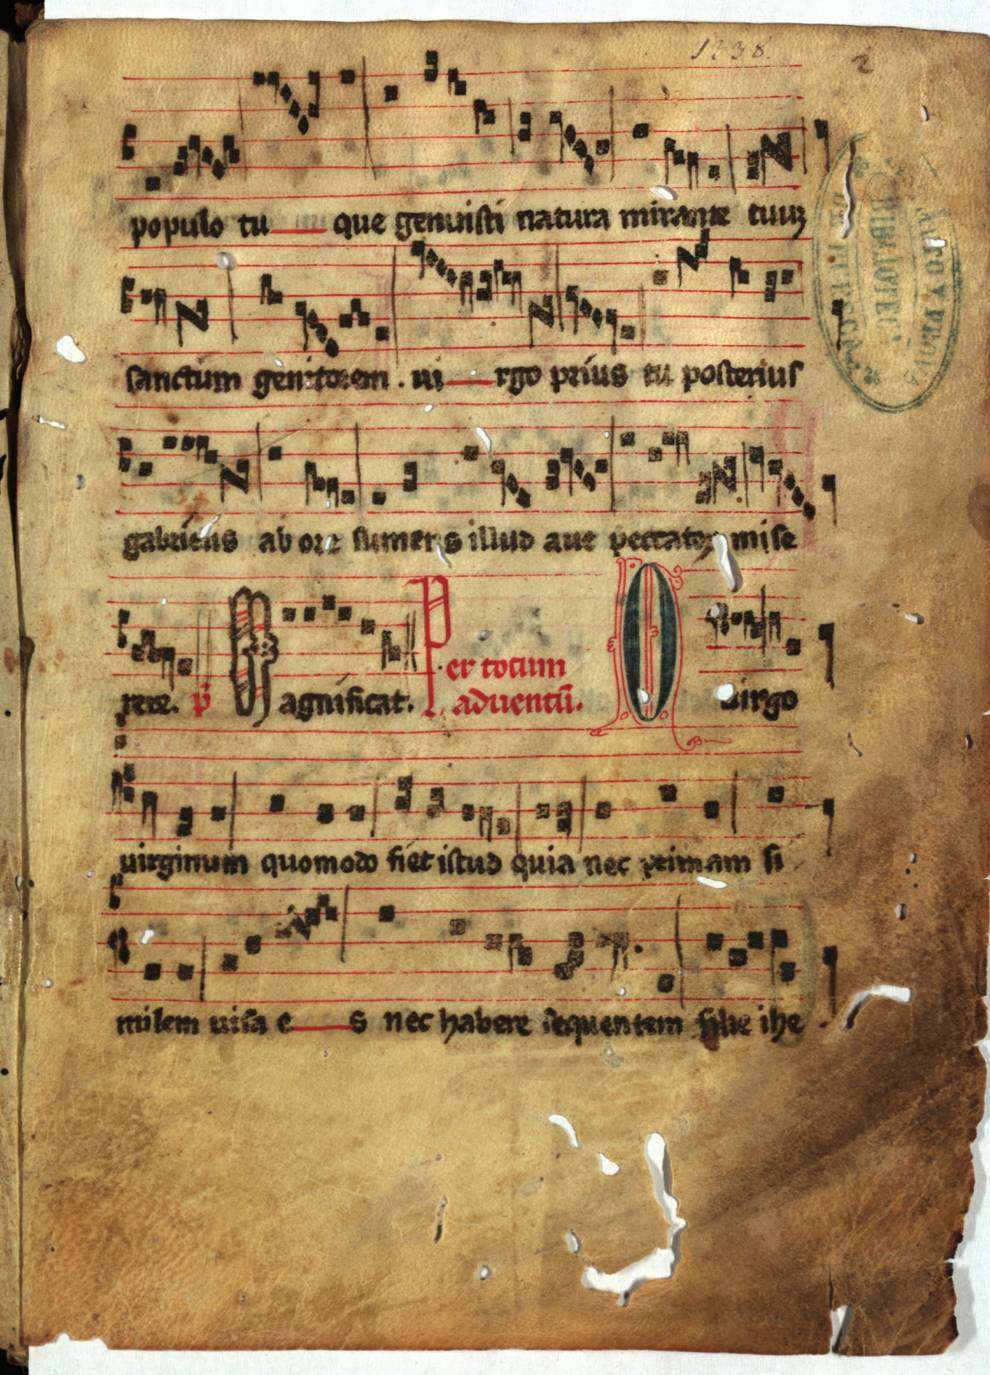 1338.
2
populo tu que genuisti natura mirante tuuʒ
sanctum genitorem. ui rgo prius tu posterius
gabrielis ab ore sumens illud aue peccatoꝝ mise
rere. pͫ Magnificat. Per totum aduentū. O uirgo
uirginum quomodo fiet istud quia nec primam si
milem uisa e s nec habere sequentem filie ihe